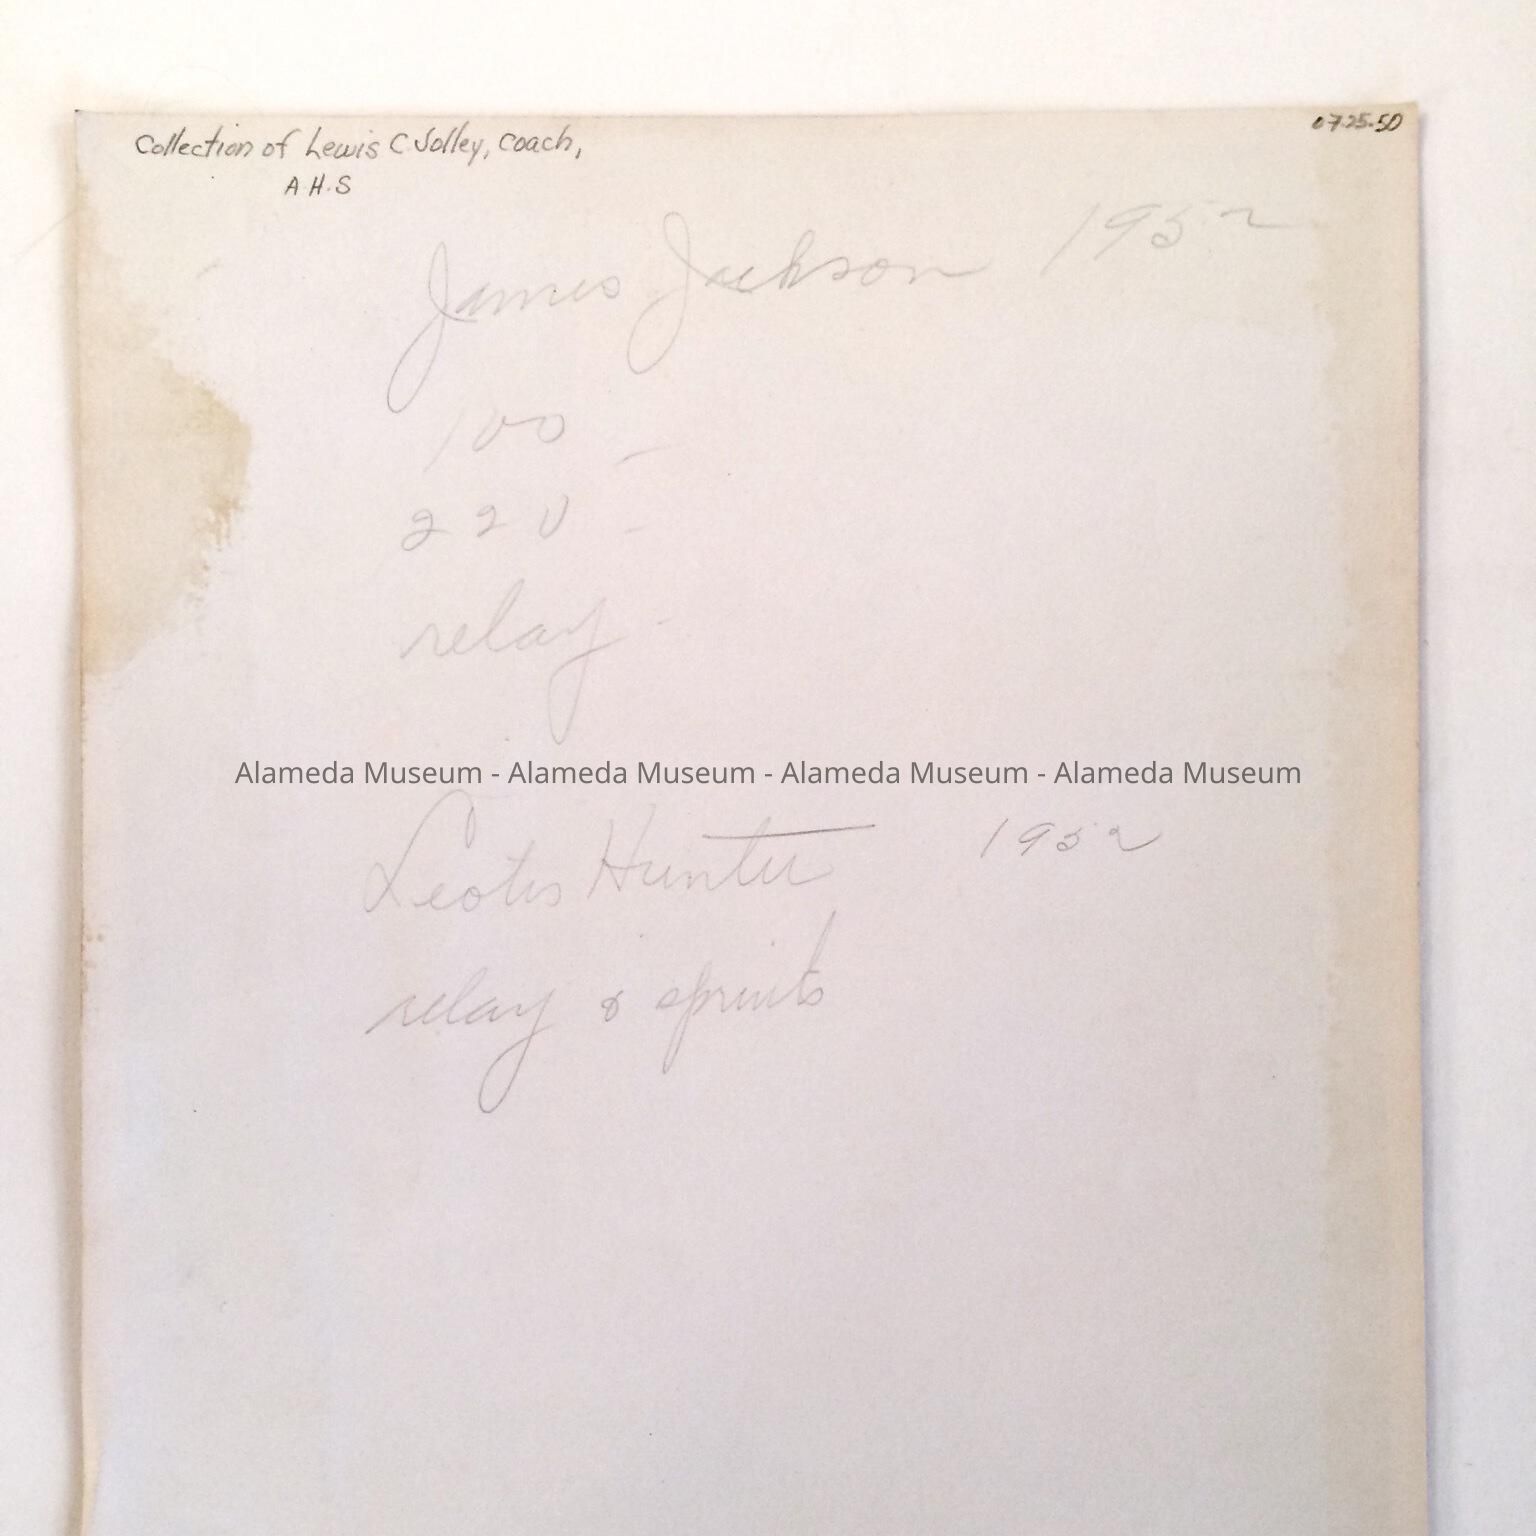 Collection of Lewis C Jolley, Coach,
A.H.S
07.25.50
James Jackson 1952
100 -
220 -
relay -
Alameda Museum - Alameda Museum - Alameda Museum - Alameda Museum
Leotis Hunter 1952
relay & sprints